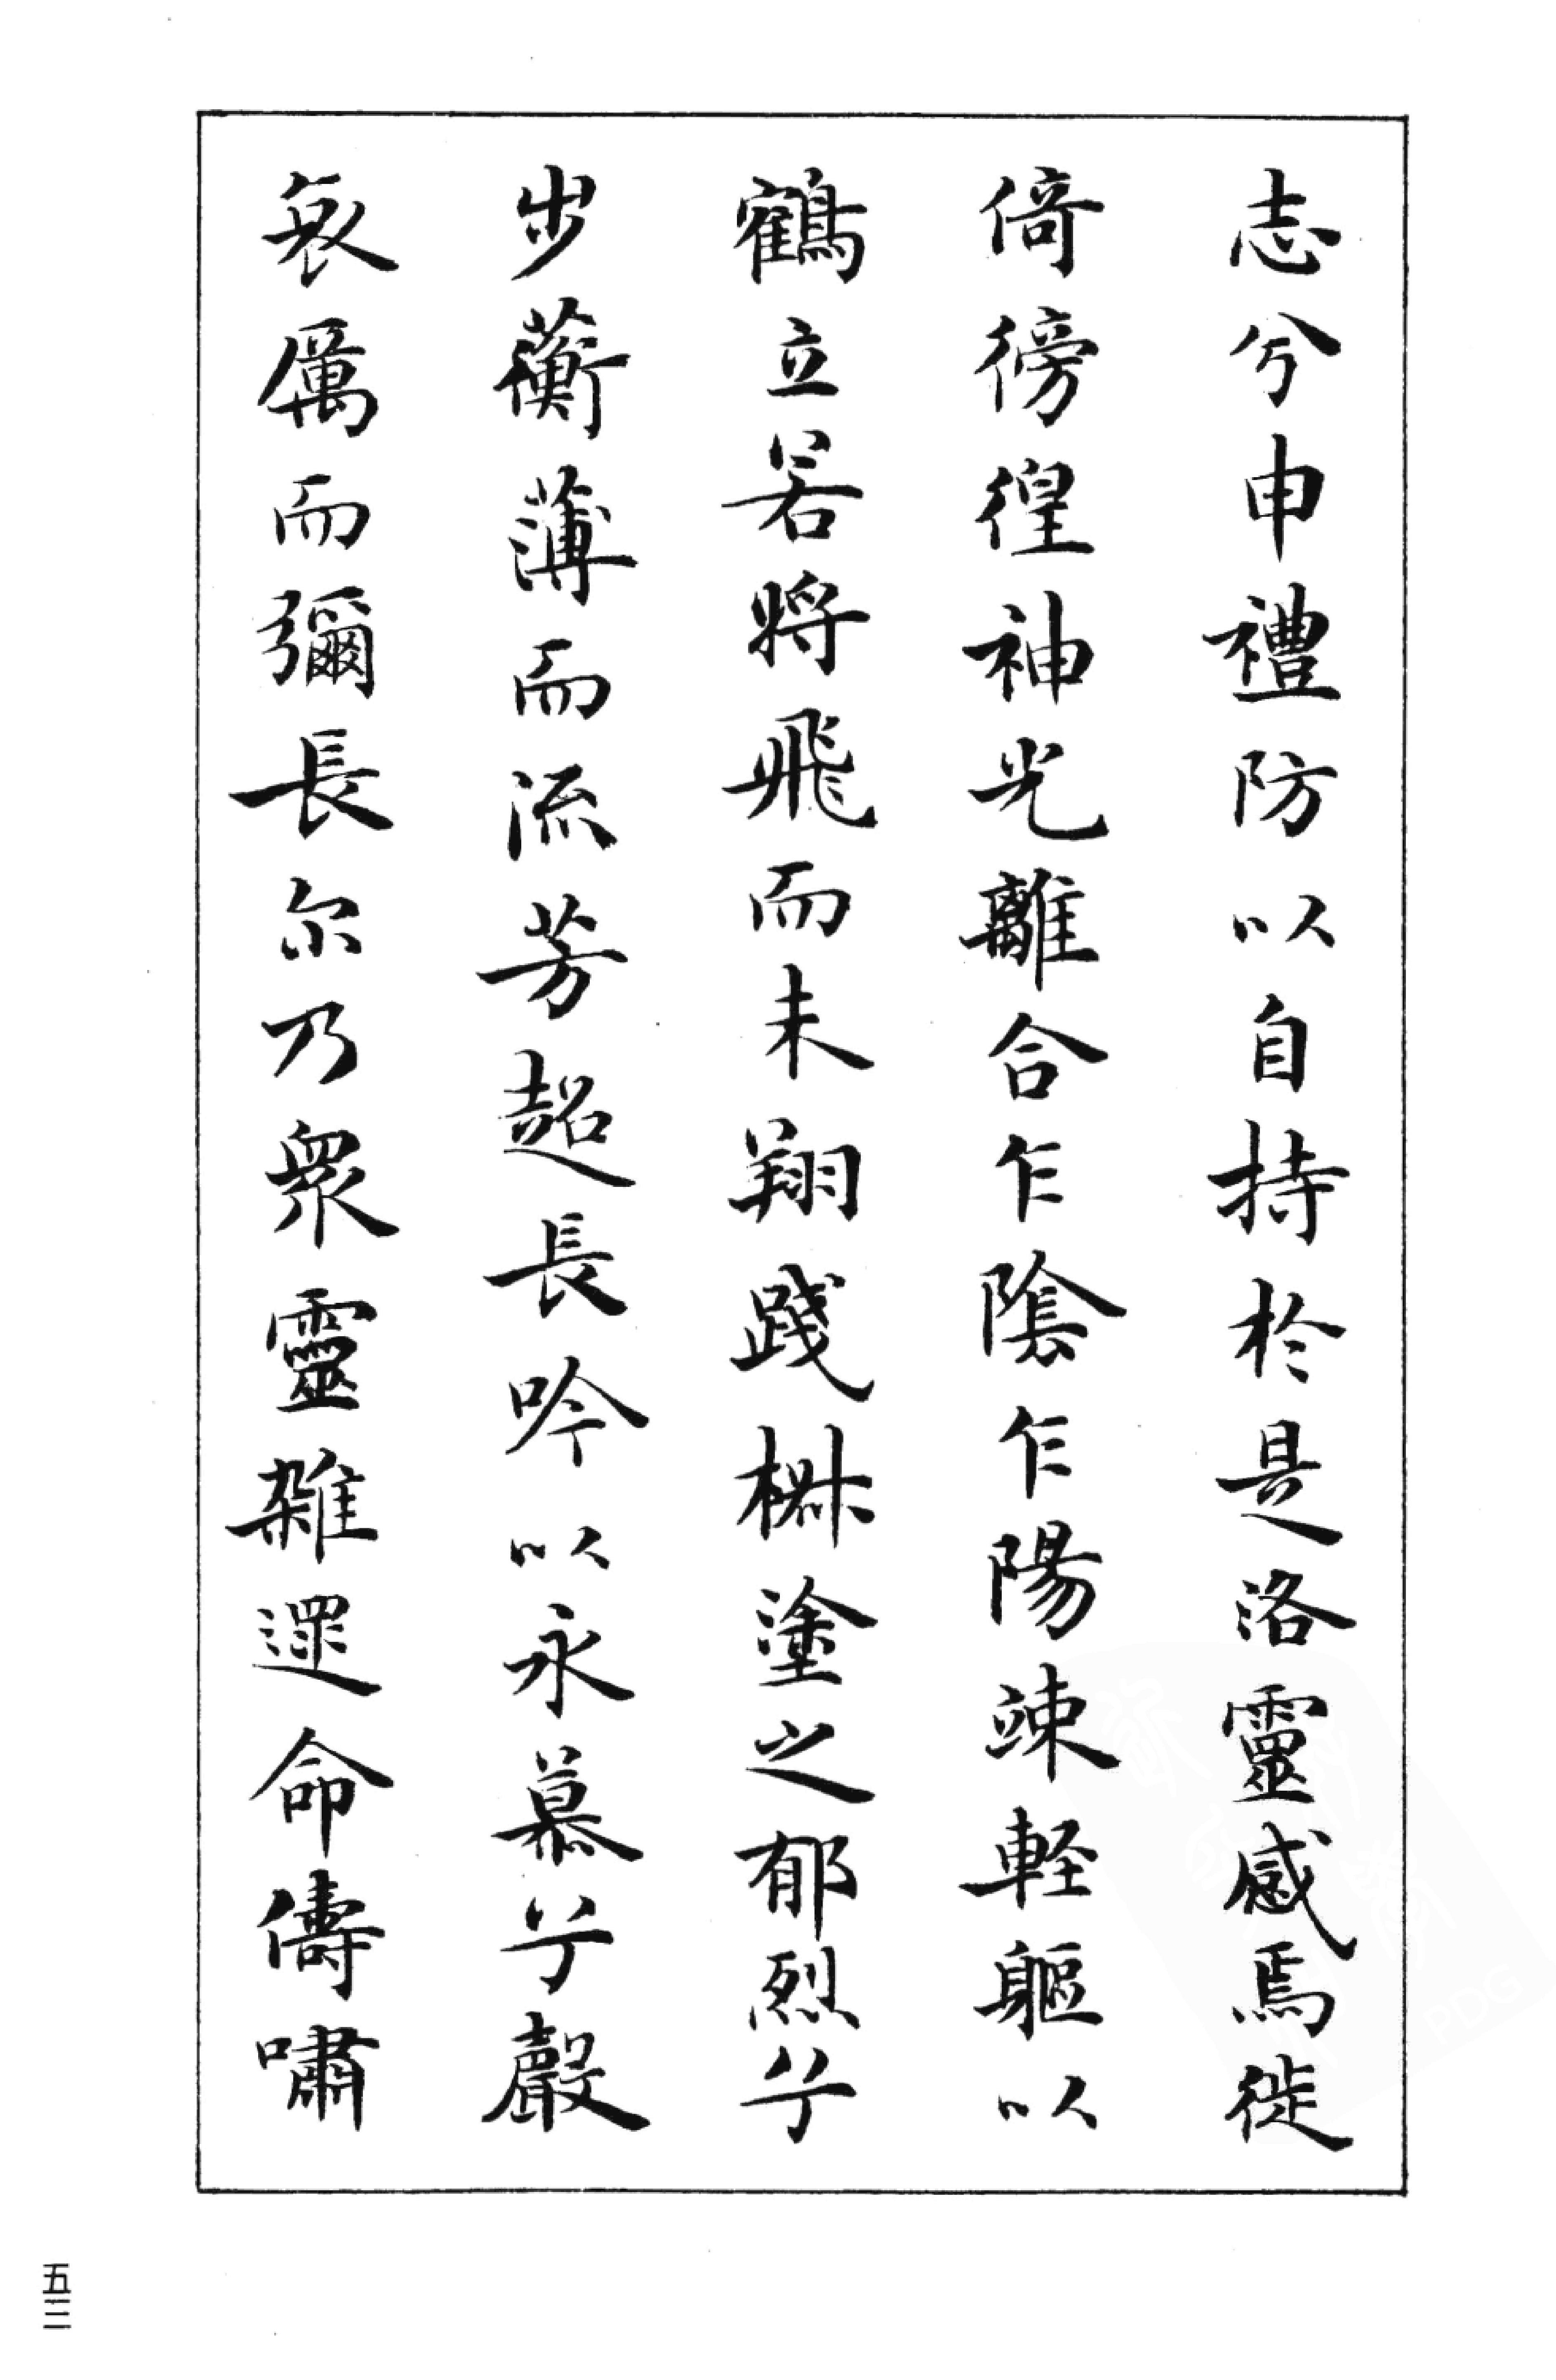 志兮申禮防以自持於是洛靈感焉徙
倚徬徨神光離合乍陰乍陽竦軽軀以
鶴立若将飛而未翔踐椒塗之郁烈兮
步蘅薄而流芳超長吟以永慕兮聲
哀厲而彌長尔乃衆靈雜遝命儔嘯
五三